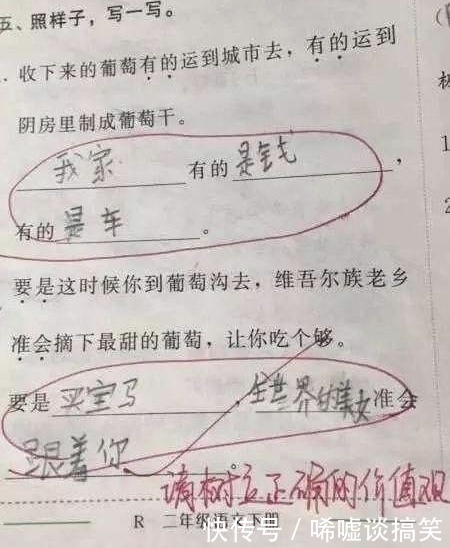 五、照样子，写一写。
收下来的葡萄有的运到城市去，有的运到
阴房里制成葡萄干。
我家有的是钱，
有的是车。
要是这时候你到葡萄沟去，维吾尔族老乡
准会摘下最甜的葡萄，让你吃个够。
要是买宝马，全世界的美女准会
跟着你。
请树立正确的价值观
R 二年级语文下册
快传号/唏嘘谈搞笑